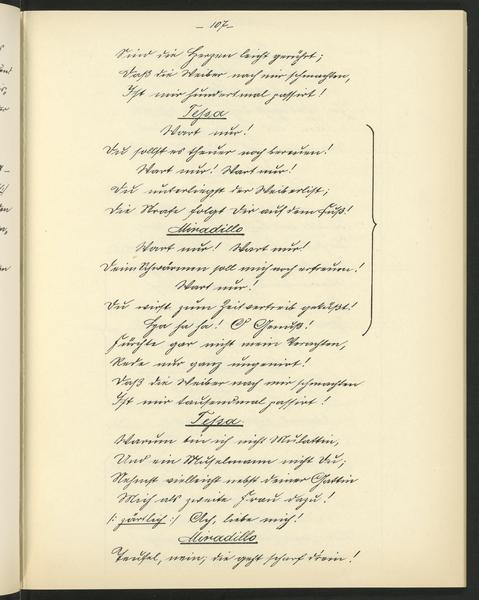 – 107 –
Sind die Herzen leicht gerührt;
Daß die Weiber nach mir schmachten,
Ist mir hundertmal passirt!
Tessa
Wart nur!
Du sollst es theuer noch bereuen!
Wart nur! Wart nur!
Du unterliegst der Weiberlist;
Die Strafe folgt Dir auf dem Fuß!
Miradillo
Wart nur! Wart nur!
Dein Schwärmen soll mich noch erfreuen!
Wart nur!
Du wirst zum Zeitvertreib geküßt!
Ha ha ha! O Genuß!
Fürchte gar nicht mein Verachten,
Rede nur ganz ungenirt!
Daß die Weiber nach mir schmachten
Ist mir tausendmal passirt!
Tessa
Warum bin ich nicht Mulattin,
Und ein Muselmann nicht Du;
Nehmst vielleicht nebst deiner Gattin
Mich als zweite Frau dazu!
/: zärtlich :/ Ach, liebe mich!
Miradillo
Teufel, nein, die geht scharf drein!